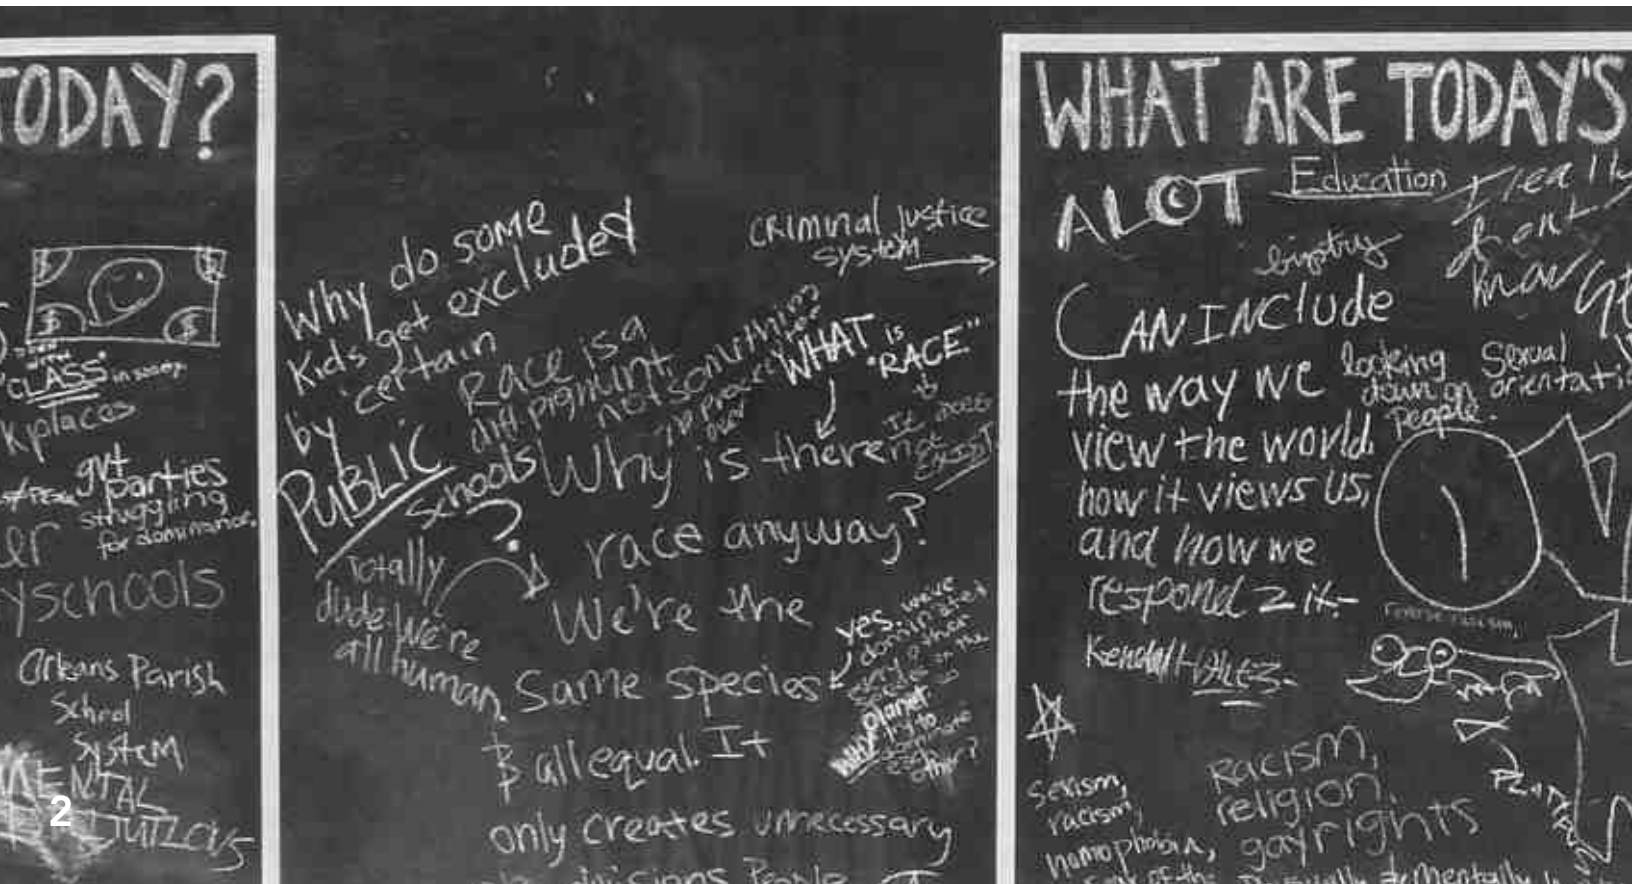 TODAY?
$ $
$ $
"CLASS" in society
kplaces
gvt
parties
struggling
for dominance.
er
yschools
Orleans Parish
School
System
MENTAL
2
Why do some
Kids get excluded
by certain
PUBLIC
schools
?
Race is a
diff pigmint
not somithing
criminal justice
system
WHAT IS
"RACE"
It does
not
EXIST.
Why is there
race anyway?
Totally
dude. We're
all human.
We're the
Same species
& all equal. It
only creates unnecessary
yes. we've
dominated
every other
species on the
planet
why try to
dominate
each
other?
WHAT ARE TODAY'S
ALOT
Education
I really
don't
know
bigotry
CAN INClude
the way we
view the world.
how it views US,
and how we
respond 2 it-
Kendall
looking
down on
People.
Sexual
orientatio
reverse racism,
sexism,
racism,
homophobia,
Racism,
religion,
gay rights